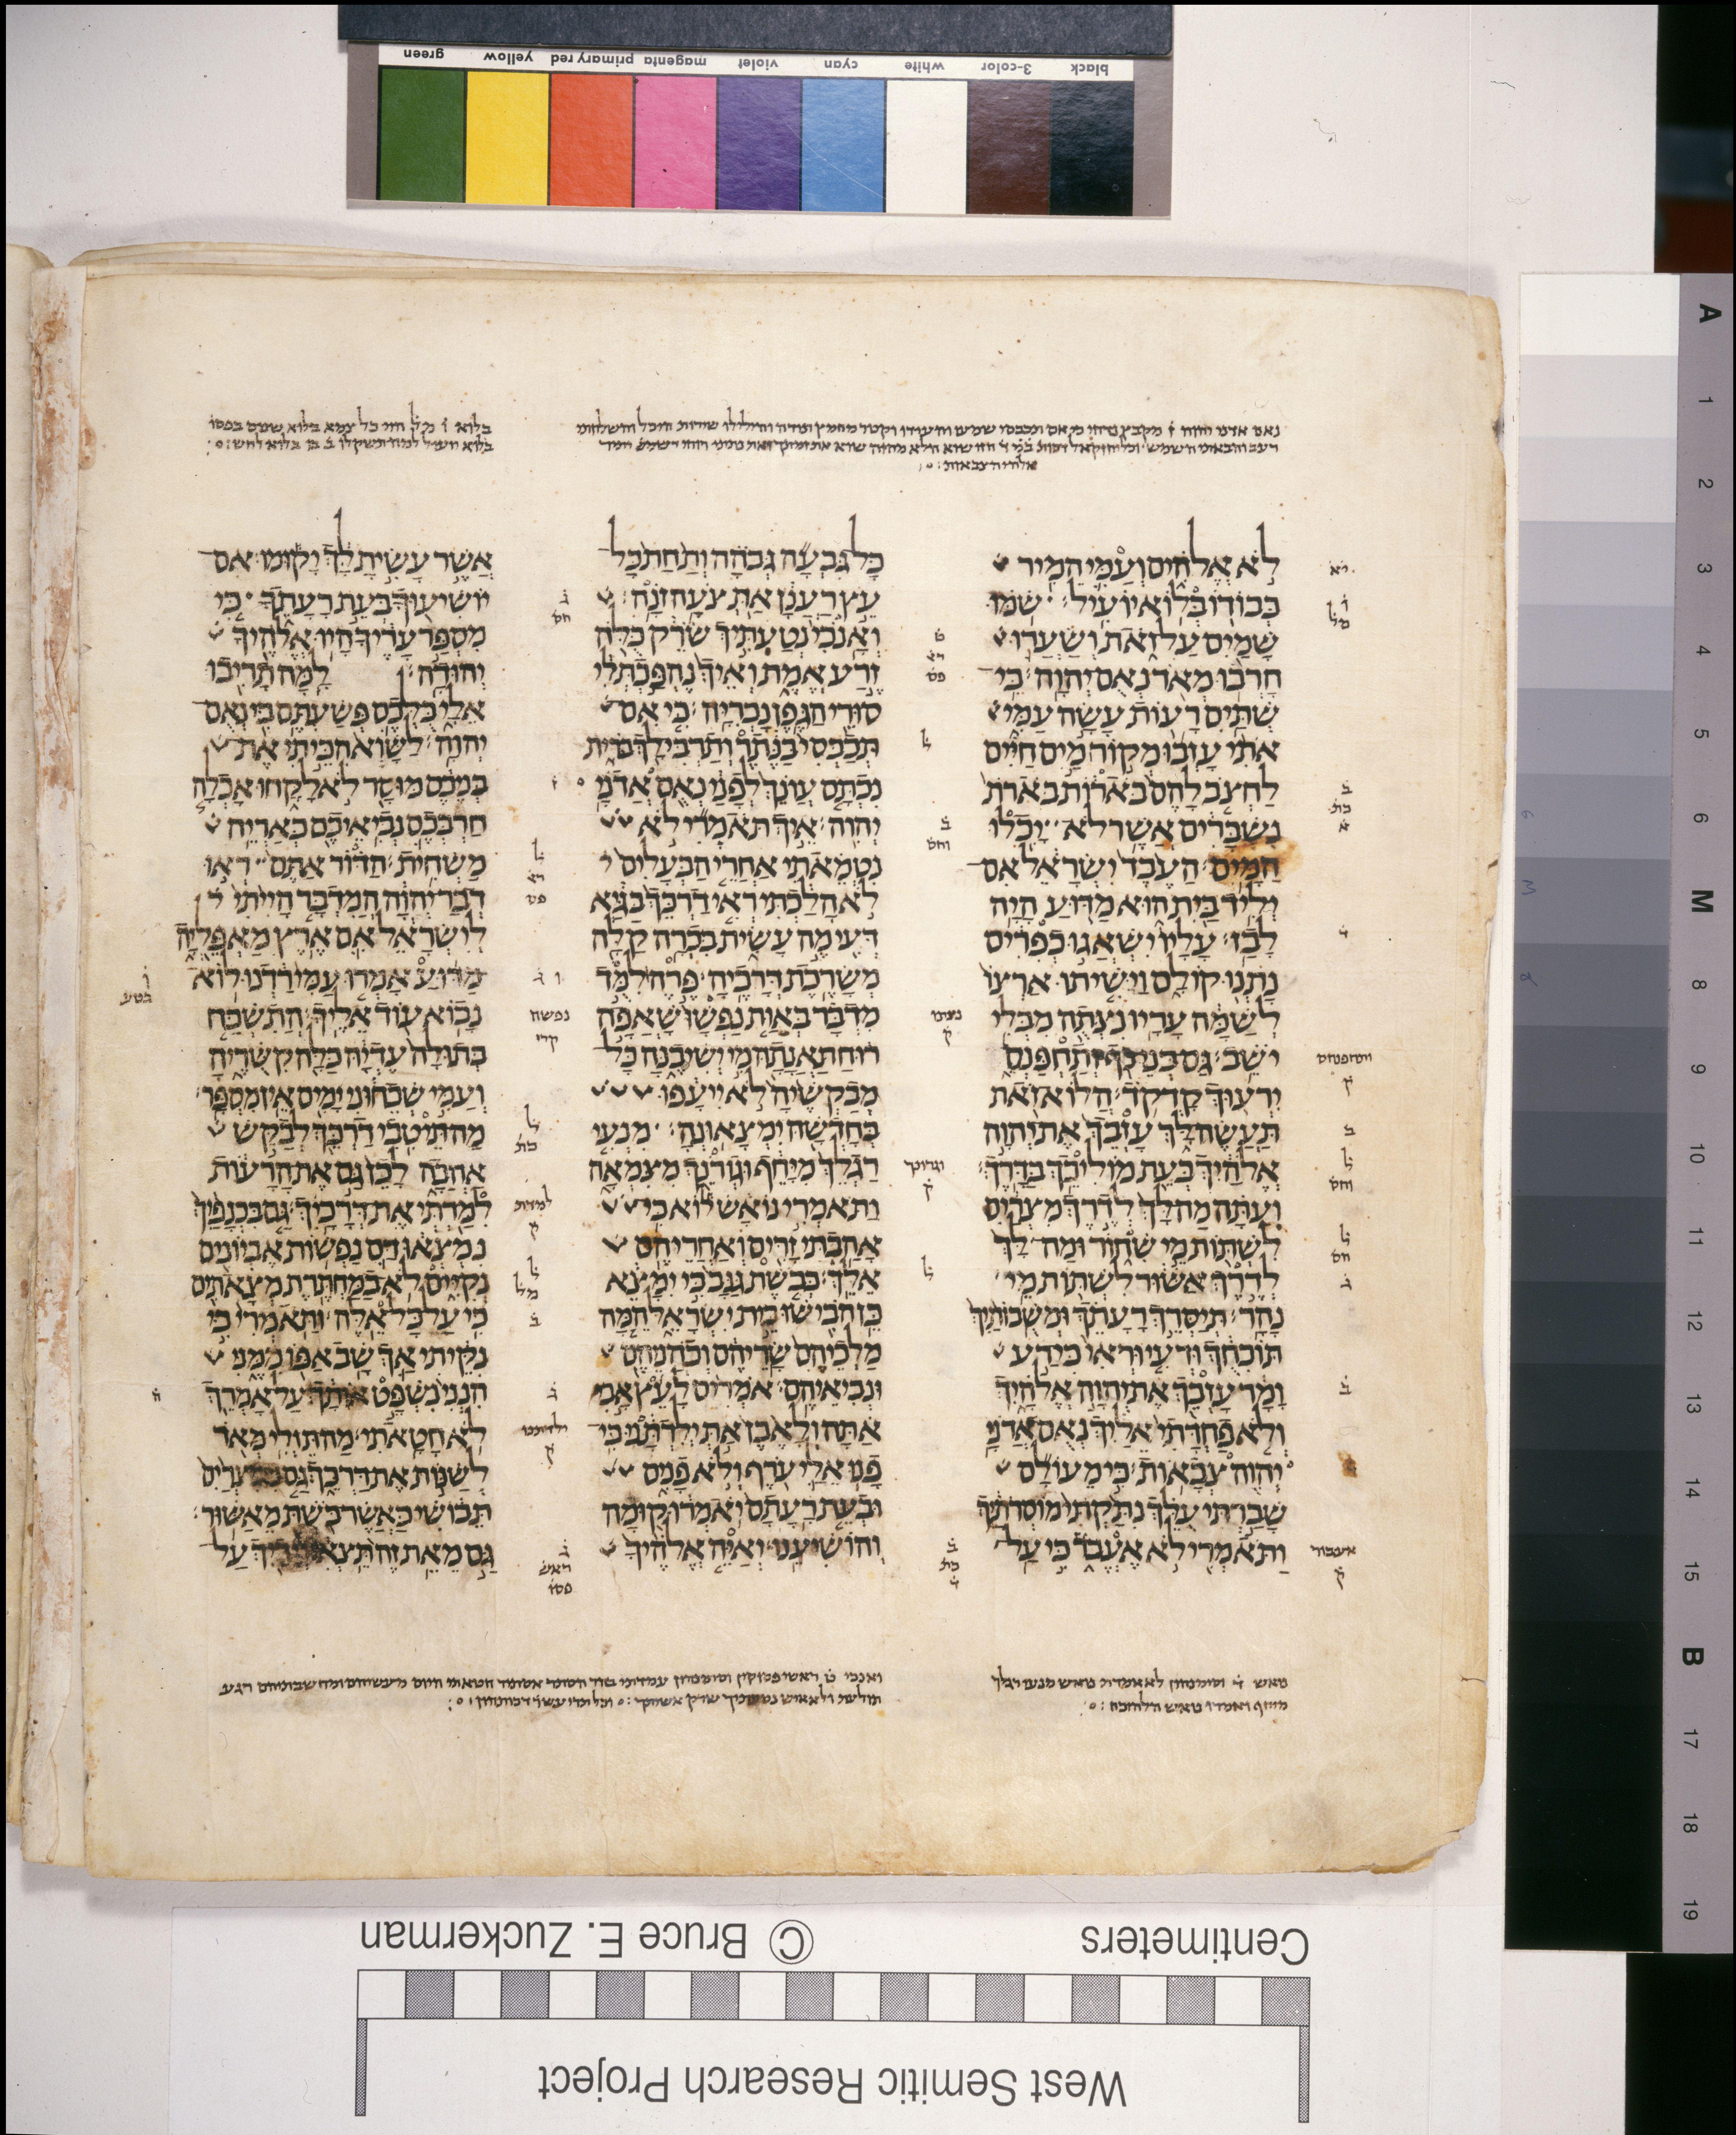 green yellow primary red magenta violet cyan white 3-color black
לא אלהים ועמי המיר
כבודו בלוא יועיל׃ שמו
שמים על זאת ושערו
חרבו מאד נאם יהוה׃ כי
שתים רעות עשה עמי
אתי עזבו מקור מים חיים
לחצב להם בארות בארת
נשברים אשר לא יכלו
המים׃ העבד ישראל אם
יליד בית הוא מדוע היה
לבז׃ עליו ישאגו כפרים
נתנו קולם וישיתו ארצו
לשמה עריו נצתה מבלי
ישב׃ גם בני נף ותחפנס
ירעוך קדקד׃ הלוא זאת
תעשה לך עזבך את יהוה
אלהיך בעת מוליכך בדרך׃
ועתה מה לך לדרך מצרים
לשתות מי שחור ומה לך
לדרך אשור לשתות מי
נהר׃ תיסרך רעתך ומשבותיך
תוכחך ודעי וראי כי רע
ומר עזבך את יהוה אלהיך
ולא פחדתי אליך נאם אדני
יהוה צבאות׃ כי מעולם
שברתי עלך נתקתי מוסרתיך
ותאמרי לא אעבד כי על
כל גבעה גבהה ותחת כל
עץ רענן את צעה זנה׃
ואנכי נטעתיך שרק כלה
זרע אמת ואיך נהפכת לי
סורי הגפן נכריה׃ כי אם
תכבסי בנתר ותרבי לך ברית
נכתם עונך לפני נאם אדני
יהוה׃ איך תאמרי לא
נטמאתי אחרי הבעלים
לא הלכתי ראי דרכך בגיא
דעי מה עשית בכרה קלה
משרכת דרכיה׃ פרה למד
מדבר באות נפשו שאפה
רוח תאנתה מי ישיבנה כל
מבקשיה לא ייעפו
בחדשה ימצאונה׃ מנעי
רגלך מיחף וגורנך מצמאה
ותאמרי נואש לוא כי
אהבתי זרים ואחריהם
אלך׃ כבשת גנב כי ימצא
כן הבישו בית ישראל המה
מלכיהם שריהם וכהניהם
ונביאיהם׃ אמרים לעץ אבי
אתה ולאבן את ילדתני כי
פנו אלי ערף ולא פנים
ובעת רעתם יאמרו קומה
והושיענו׃ ואיה אלהיך
אשר עשית לך יקומו אם
יושיעוך בעת רעתך כי
מספר עריך היו אלהיך
יהודה׃ למה תריבו
אלי כלכם פשעתם בי נאם
יהוה׃ לשוא הכיתי את
בניכם מוסר לא לקחו אכלה
חרבכם נביאיכם כאריה
משחית׃ הדור אתם ראו
דבר יהוה המדבר הייתי
לישראל אם ארץ מאפליה
מדוע אמרו עמי רדנו לוא
נבוא עוד אליך׃ התשכח
בתולה עדיה כלה קשריה
ועמי שכחוני ימים אין מספר׃
מה תיטבי דרכך לבקש
אהבה לכן גם את הרעות
למדתי את דרכיך׃ גם בכנפיך
נמצאו דם נפשות אביונים
נקיים לא במחתרת מצאתים
כי על כל אלה׃ ותאמרי כי
נקיתי אך שב אפו ממני
הנני נשפט אותך על אמרך
לא חטאתי׃ מה תזלי מאד
לשנות את דרכך גם ממצרים
תבושי כאשר בשת מאשור׃
גם מאת זה תצאי וידיך על
Centimeters © Bruce E. Zuckerman
West Semitic Research Project
A 1 2 3 4 5 6 M 8 9 10 11 12 13 14 15 B 17 18 19